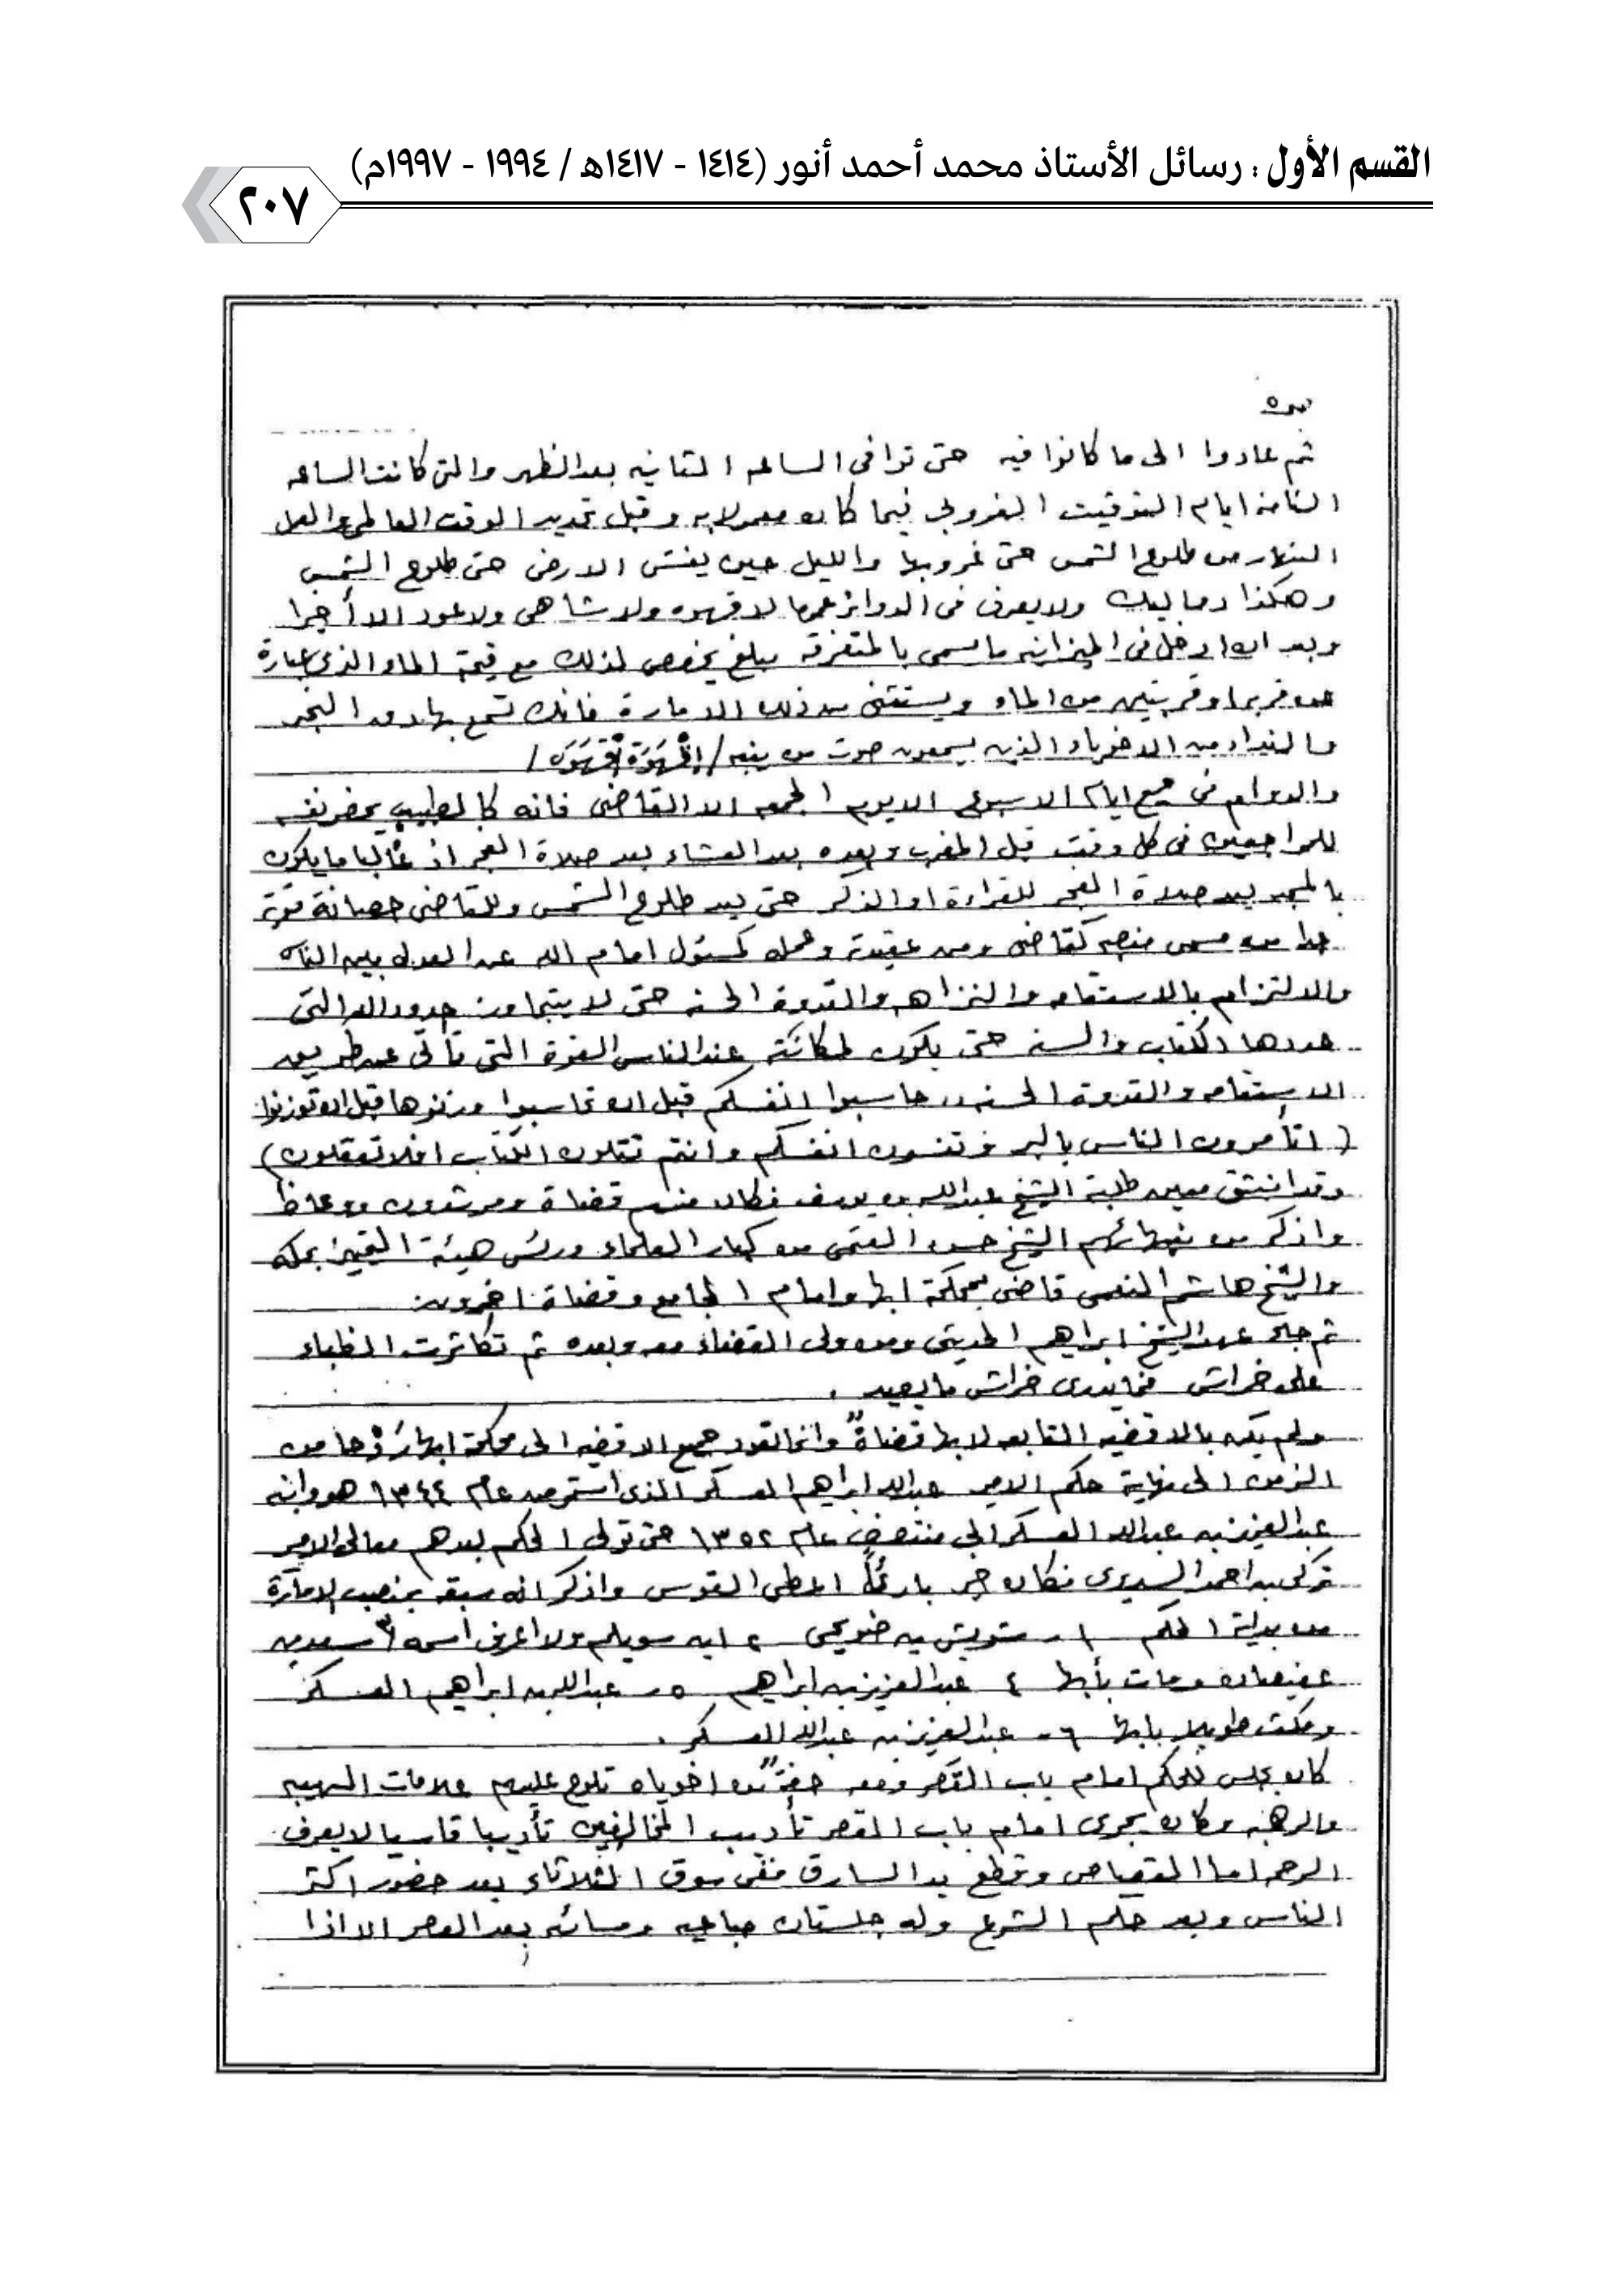 القسم الأول : رسائل الأستاذ محمد أحمد أنور (١٤١٤ - ١٤١٧هـ / ١٩٩٤ - ١٩٩٧م)
٢٠٧
ثم عادوا الى ما كانوا فيه حتى توافى الساعه الثانيه بعد الظهر والتى كانت الساعه
الثامنه ايام التوقيت الغروبى فيما كان معمولا به وقبل تحديد الوقت العالمى والعمل
النهار من طلوع الشمس حتى غروبها والليل حين يغشى الارض حتى طلوع الشمس
وهكذا دماليك ولا يعرف فى الدوائر عموما لا قهوه ولا شاهى ولا عود الا أخيرا
وبعد ان ادخل فى الميزانيه ما يسمى بالمتفرقه مبلغ يخصص لذلك مع قيمة الماء الذى عبارة
عن قربه او قربتين من الماء ويستثنى من ذلك الامارة فانك تسمع بها دق النجر
والنداء من الاخوياء الذين يسمعون صوت من ينبه / إقْهَوَة إقْهَوَه /
والدوام فى جميع ايام الاسبوع الا يوم الجمعه الا القاضى فانه كالطبيب يحضر نفسه
للمراجعين فى كل وقت قبل المغرب وبعده بعد العشاء بعد صلاة الفجر اذ غالبا ما يكون
بالمسجد بعد صلاة الفجر للقراءة او الذكر حتى بعد طلوع الشمس وللقاضى حصانة قوية
جدا من مسمى منصبه كقاضى ومن عقيدته وعمله كمسئول امام الله عن العدل بين الناس
والالتزام بالاستقامه والنزاهه والقدوة الحسنه حتى لا يتجاوز حدود الله التى
حددها الكتاب والسنه حتى يكون لمكانته عند الناس القوة التى تأتى عن طريق
الاستقامه والقدوة الحسنه ,, حاسبوا انفسكم قبل ان تحاسبوا وزنوها قبل ان توزنوا
( اتأمرون الناس بالبر وتنسون انفسكم وانتم تتلون الكتاب افلا تعقلون )
وقد انبثق من بين طلبة الشيخ عبدالله بن يوسف فكان منهم قضاة ومرشدون ووعاظ
واذكر من نبهائهم الشيخ حسن العتمى من كبار العلماء ورئس هيئة التمييز بمكه
والشيخ هاشم النعمى قاضى بمحكمة ابها وامام الجامع وقضاة اخرون
ثم جاء عهد الشيخ ابراهيم الحديثى ومن ولى القضاء معه وبعده ثم تكاثرت الظباء
على خراش فما يدرى خراش ما يصيد .
ولم يكن بالاقضيه التابعه لابها قضاة وانما تعود جميع الاقضيه الى محكمة ابها رُدْحا من
الزمن الى نهاية حكم الامير عبدالله ابراهيم العسكر الذى استمر من عام ١٣٤٤ هو وابنه
عبدالعزيز بن عبدالله العسكر الى منتصف عام ١٣٥٢ حتى تولى الحكم بعدهم معالى الامير
تركى بن احمد السديرى فكان خير بارئًا اعطى القوس واذكر انه سبقه بمنصب الامارة
من بداية الحكم ١ - شويش بن ضويحى ٢ ابن سويلم ولا اعرف اسمه ٣ سعد بن
عفيصان ومات بأبها ٤ عبدالعزيز بن ابراهيم ٥ - عبدالله بن ابراهيم العسكر
ومكث طويلا بابها ٦ - عبدالعزيز بن عبدالله العسكر .
كان يجلس للحكم امام باب القصر ومعه حفنة من اخوياه تلوح عليهم علامات الهيبه
والرهبه وكان يجرى امام باب القصر تأديب المخالفين تأديبا قاسيا لا يعرف
الرحمه اما القصاص وقطع يد السارق ففى سوق الثلاثاء بعد حضور اكثر
الناس وبعد حكم الشرع وله جلستان صباحيه ومسائه بعد العصر الا اذا